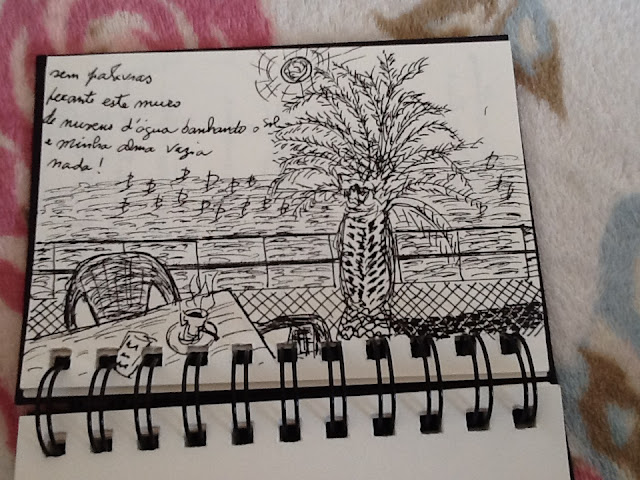 sem palavras
perante este muro
de nuvens d'água banhando o sol
e minha alma vazia
nada!